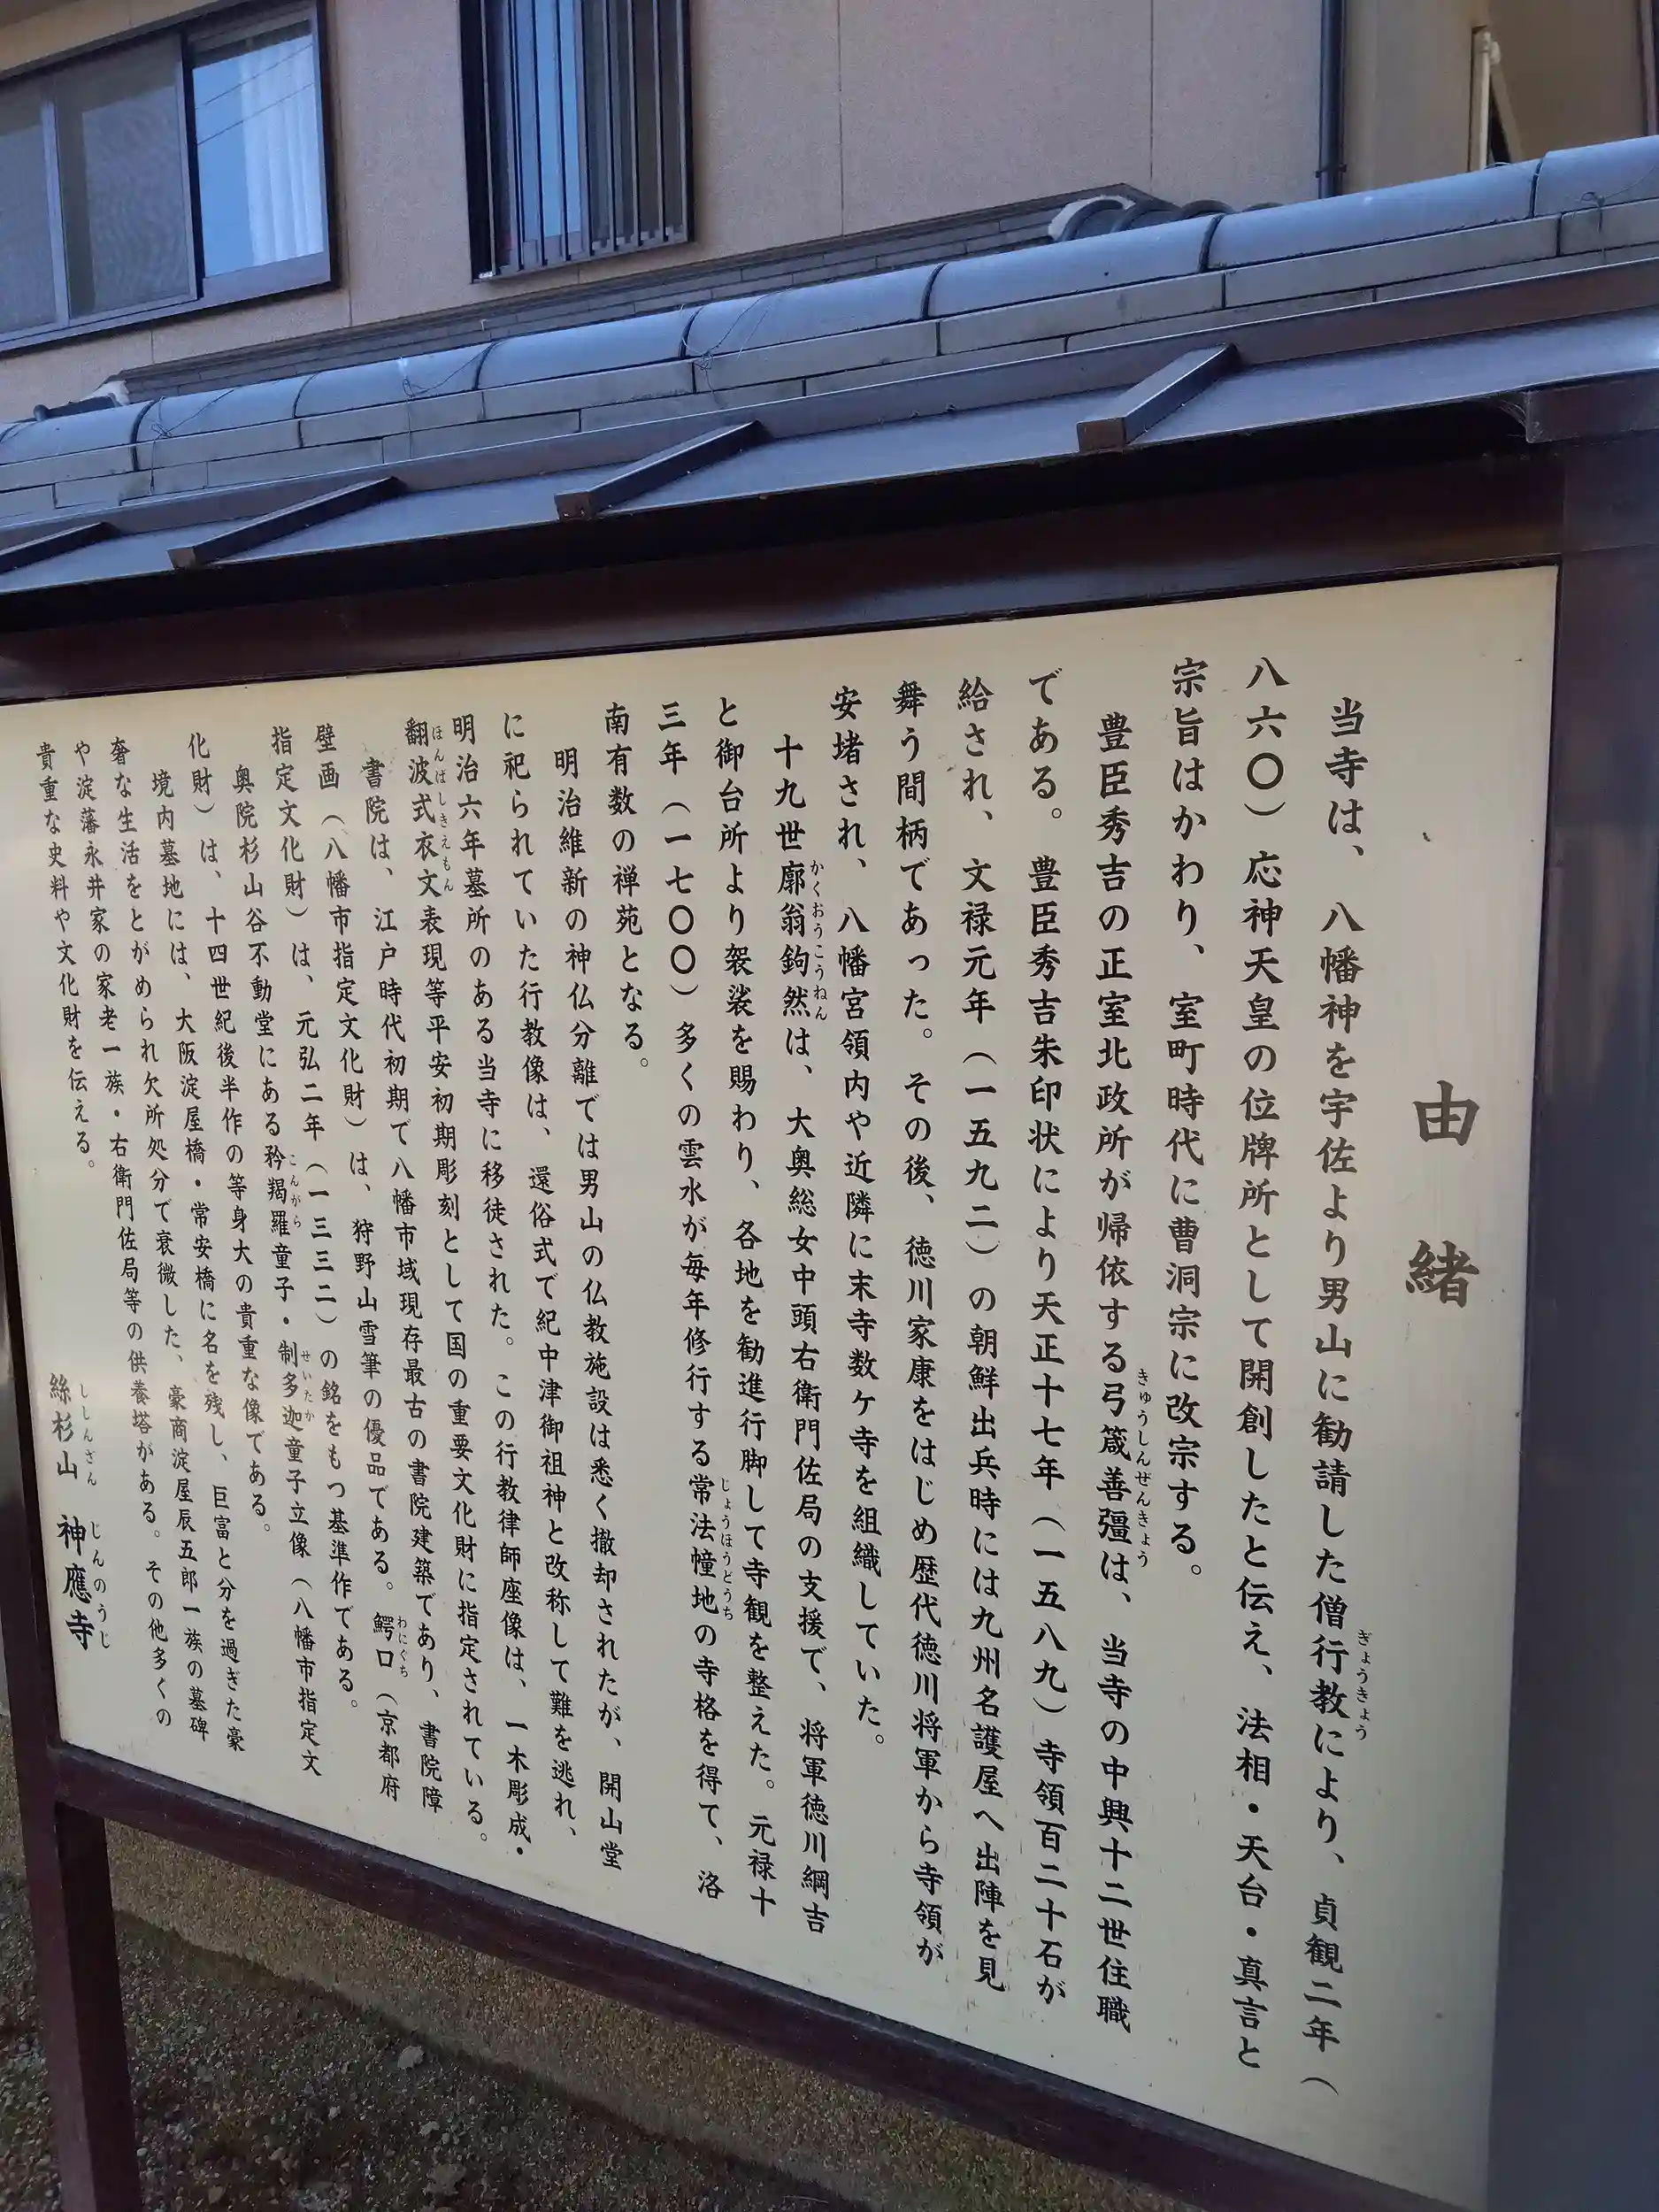 由緒
当寺は、八幡神を宇佐より男山に勧請した僧行教により、貞観二年（
ぎょうきょう
八六〇）応神天皇の位牌所として開創したと伝え、法相・天台・真言と
宗旨はかわり、室町時代に曹洞宗に改宗する。
豊臣秀吉の正室北政所が帰依する弓箴善彊は、当寺の中興十二世住職
きゅうしんぜんきょう
である。豊臣秀吉朱印状により天正十七年（一五八九）寺領百二十石が
給され、文禄元年（一五九二）の朝鮮出兵時には九州名護屋へ出陣を見
舞う間柄であった。その後、徳川家康をはじめ歴代徳川将軍から寺領が
安堵され、八幡宮領内や近隣に末寺数ケ寺を組織していた。
十九世廓翁鉤然は、大奥総女中頭右衛門佐局の支援で、将軍徳川綱吉
かくおうこうねん
と御台所より袈裟を賜わり、各地を勧進行脚して寺観を整えた。元禄十
三年（一七〇〇）多くの雲水が毎年修行する常法幢地の寺格を得て、洛
じょうほうどうち
南有数の禅苑となる。
明治維新の神仏分離では男山の仏教施設は悉く撤却されたが、開山堂
に祀られていた行教像は、還俗式で紀中津御祖神と改称して難を逃れ、
明治六年墓所のある当寺に移徒された。この行教律師座像は、一木彫成・
翻波式衣文表現等平安初期彫刻として国の重要文化財に指定されている。
ほんぱしきえもん
書院は、江戸時代初期で八幡市域現存最古の書院建築であり、書院障
壁画（八幡市指定文化財）は、狩野山雪筆の優品である。鰐口（京都府
わにぐち
指定文化財）は、元弘二年（一三三二）の銘をもつ基準作である。
奥院杉山谷不動堂にある矜羯羅童子・制多迦童子立像（八幡市指定文
こんがら
せいたか
化財）は、十四世紀後半作の等身大の貴重な像である。
境内墓地には、大阪淀屋橋・常安橋に名を残し、巨富と分を過ぎた豪
奢な生活をとがめられ欠所処分で衰微した、豪商淀屋辰五郎一族の墓碑
や淀藩永井家の家老一族・右衛門佐局等の供養塔がある。その他多くの
貴重な史料や文化財を伝える。
絲杉山　神應寺
ししんざん　じんのうじ